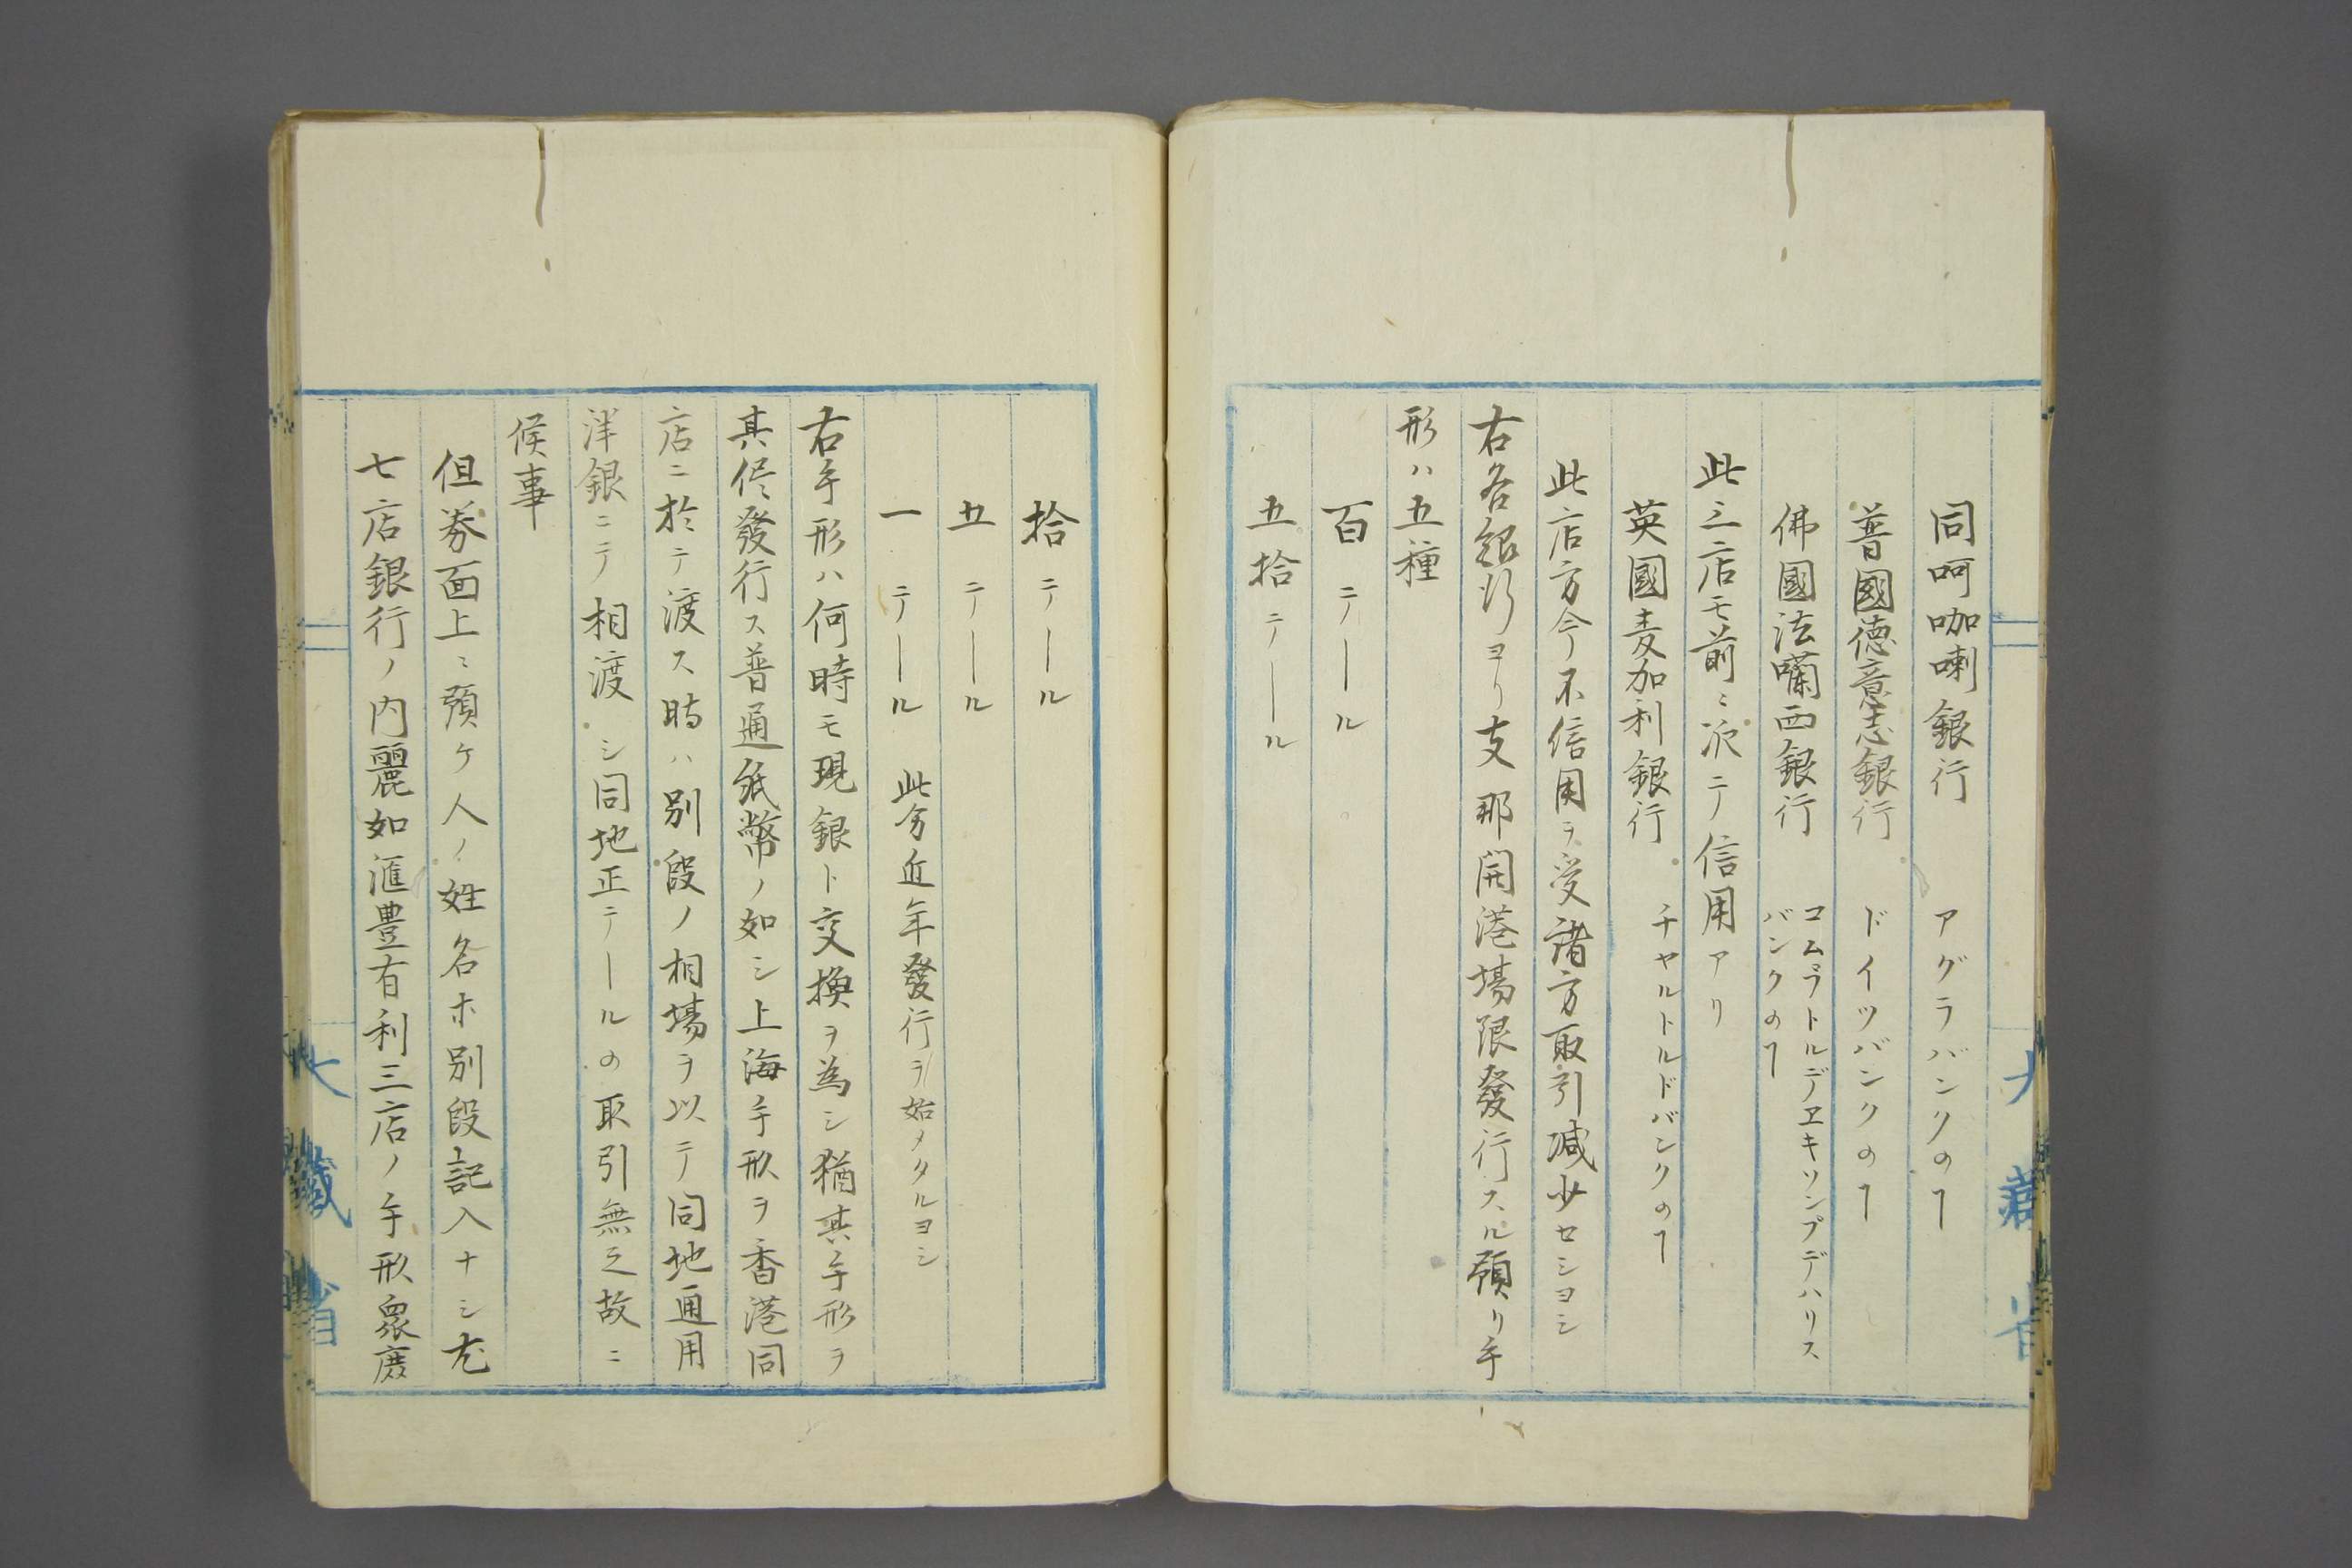 同呵咖喇銀行 アグラバンクのヿ
普國德意志銀行 ドイツバンクのヿ
佛國法囒西銀行 コムプトルデヱキソンプデハリス
バンクのヿ
此三店モ前ニ次テ信用アリ
英國麦加利銀行 チヤルトルドバンクのヿ
此店方今不信用ヲ受諸方取引減少セシヨシ
右各銀行ヨリ支那開港場限發行スル預リ手
形ハ五種
百テール
五拾テール
拾テール
五テール
一テール 此分近年發行ヲ始メタルヨシ
右手形ハ何時モ現銀ト交換ヲ為シ猶其手形ヲ
其侭發行ス普通紙幣ノ如シ上海手形ヲ香港同
店ニ於テ渡ス時ハ別段ノ相場ヲ以テ同地通用
洋銀ニテ相渡シ同地正テールの取引無之故ニ
候事
但券面上ニ預ケ人ノ姓名ホ別段記入ナシ尤
七店銀行ノ内麗如滙豊有利三店ノ手形衆庶
大藏省
大藏省